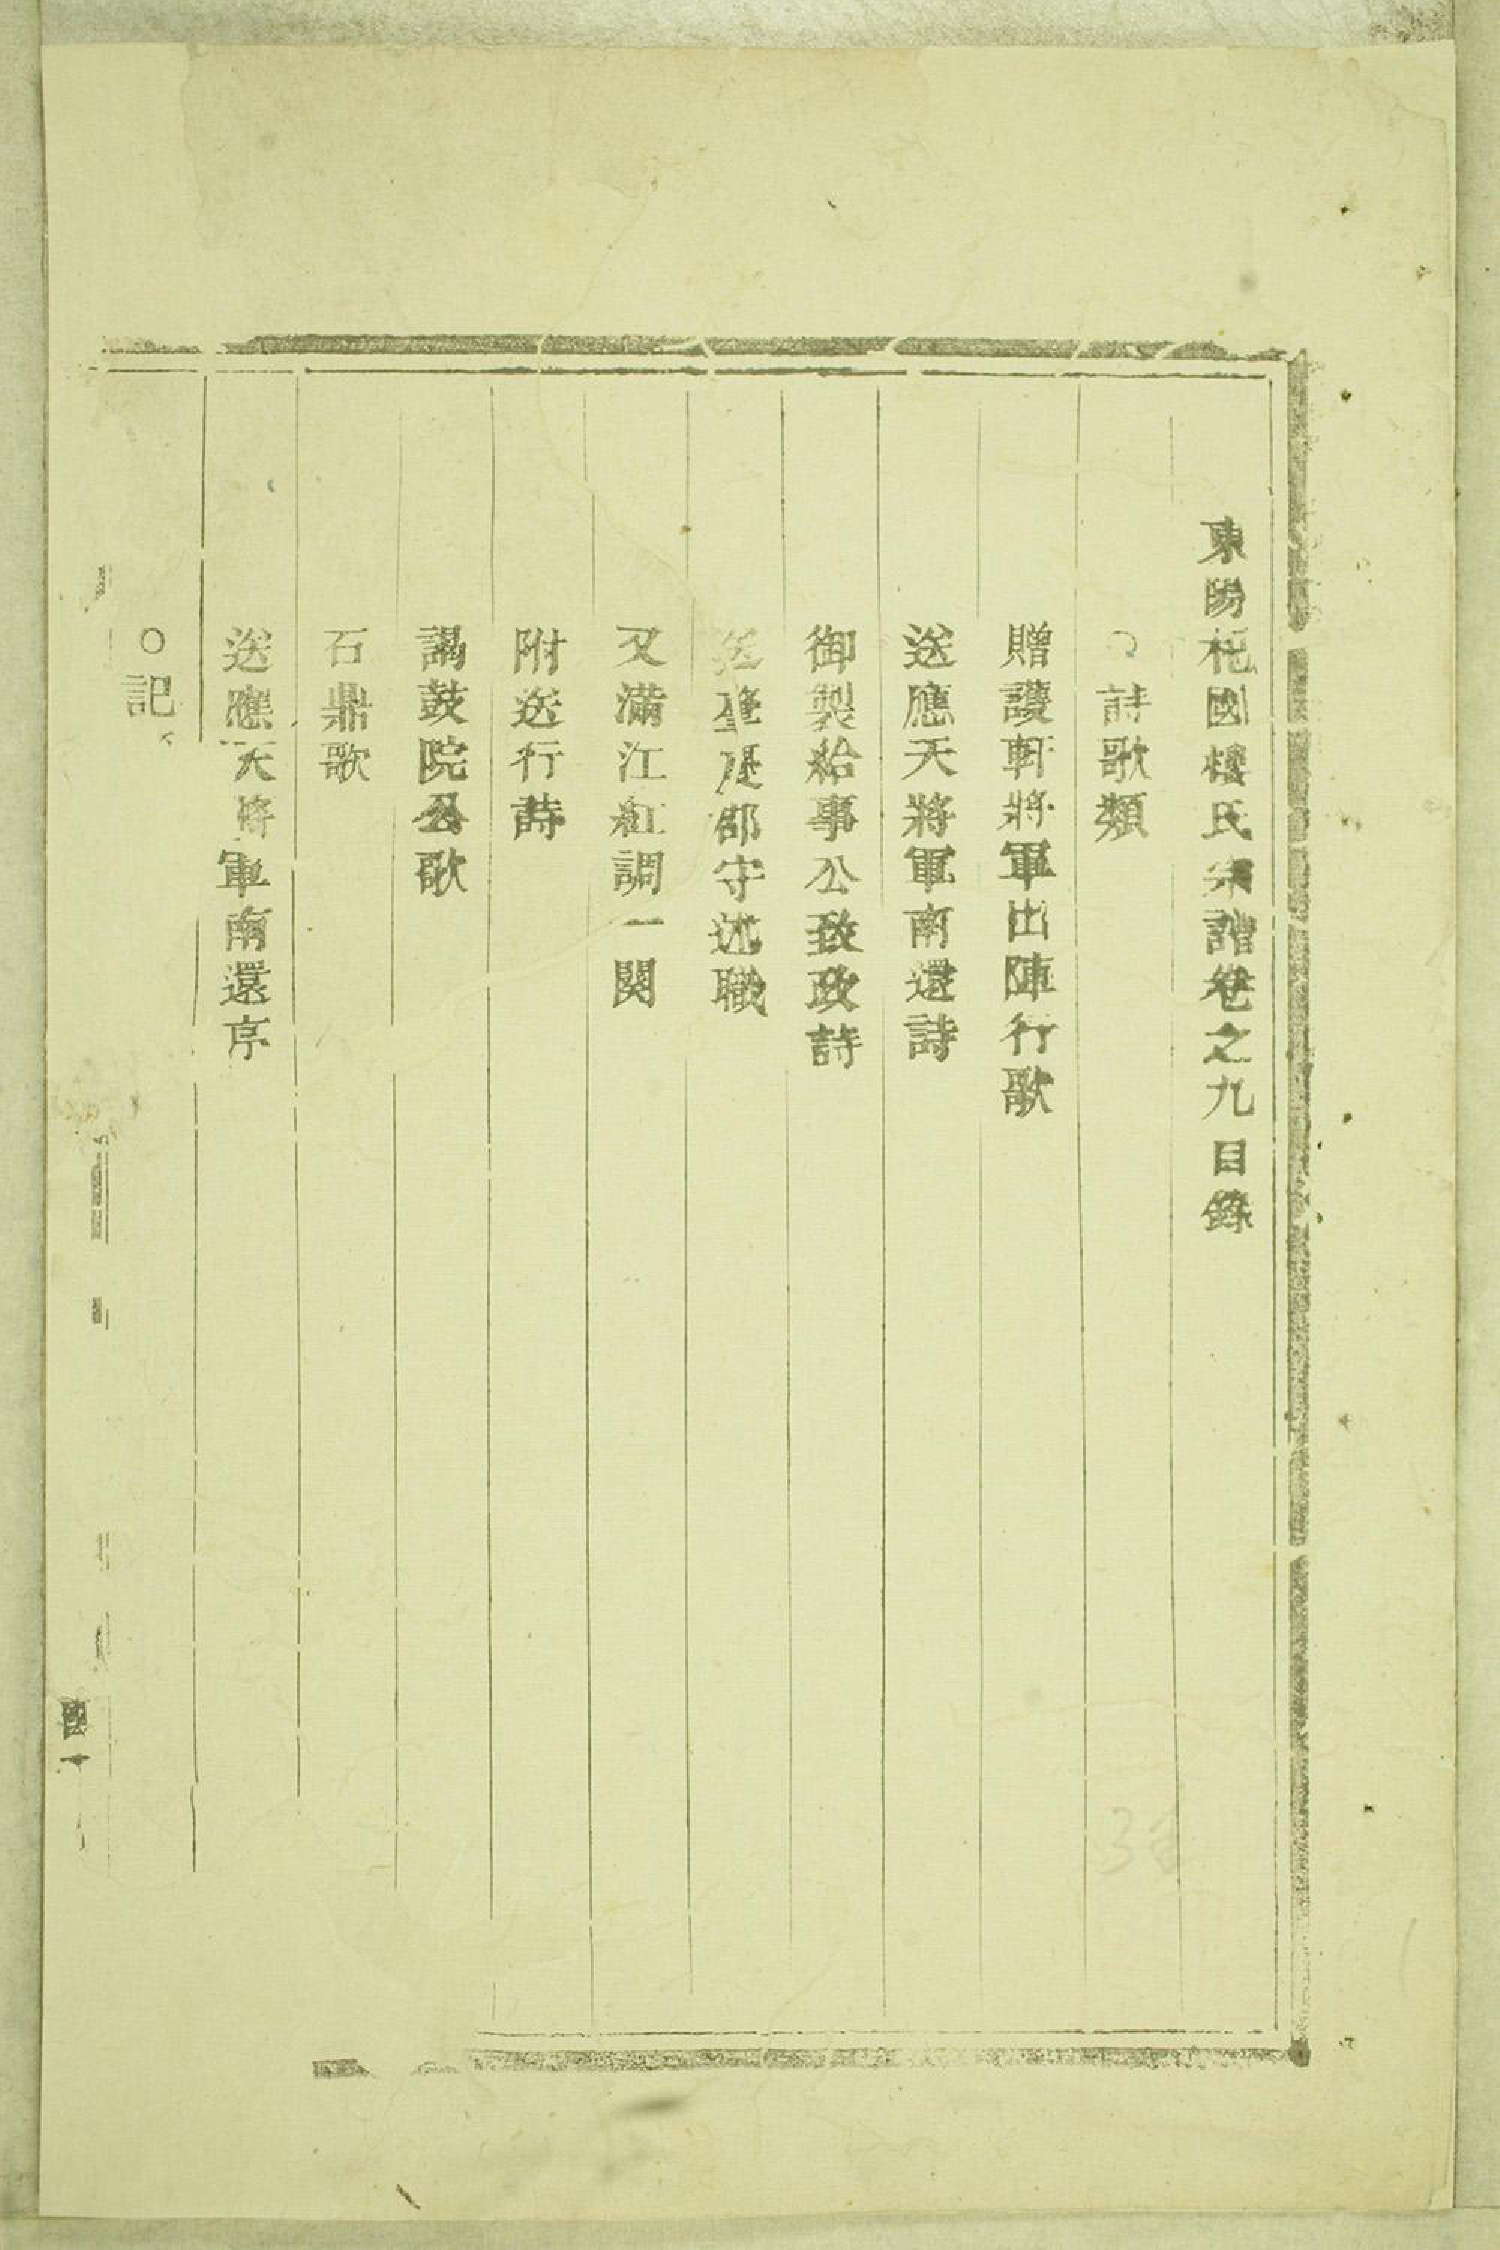 東陽杞國樓氏宗譜卷之九目錄
○詩歌類
贈護軒將軍出陣行歌
送應天將軍南還詩
御製給事公致政詩
送肇慶郡守述職
又滿江紅調一闋
附送行詩
謁鼓院公歌
石鼎歌
送應天將軍南還序
○記
國一